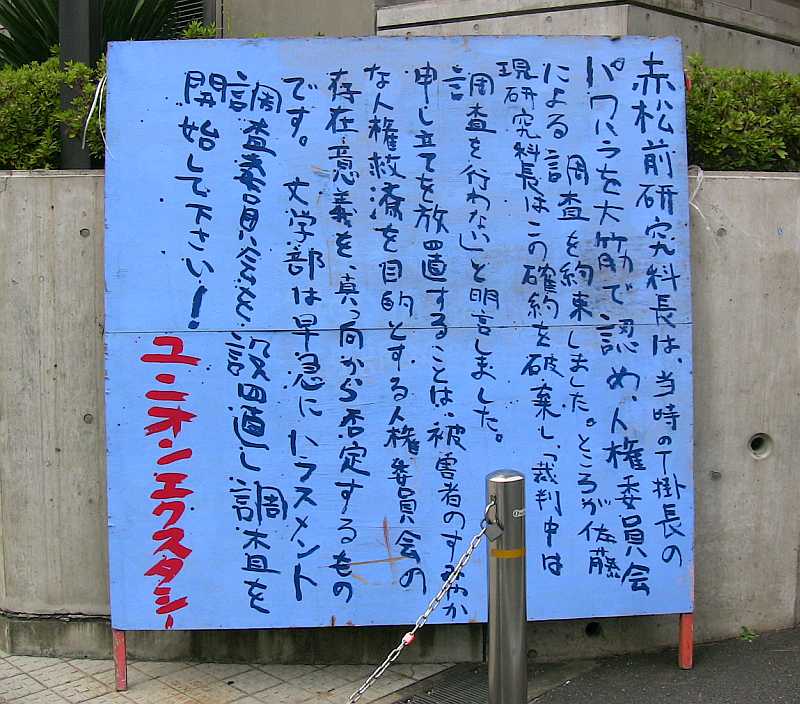 赤松前研究科長は、当時のT掛長の
パワハラを大筋で認め、人権委員会
による調査を約束しました。ところが佐藤
現研究科長はこの確約を破棄し、「裁判中は
調査を行わない」と明言しました。
申し立てを放置することは、被害者のすみやか
な人権救済を目的とする人権委員会の
存在意義を、真っ向から否定するもの
です。文学部は早急にハラスメント
調査委員会を設置し調査を
開始して下さい！
ユニオンエクスタシー